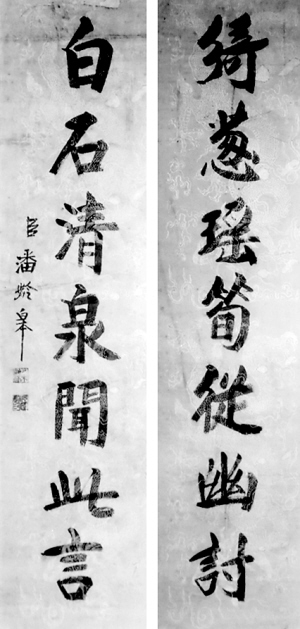 綺葱瑤筍從幽討
白石清泉聞此言
臣潘齡皋